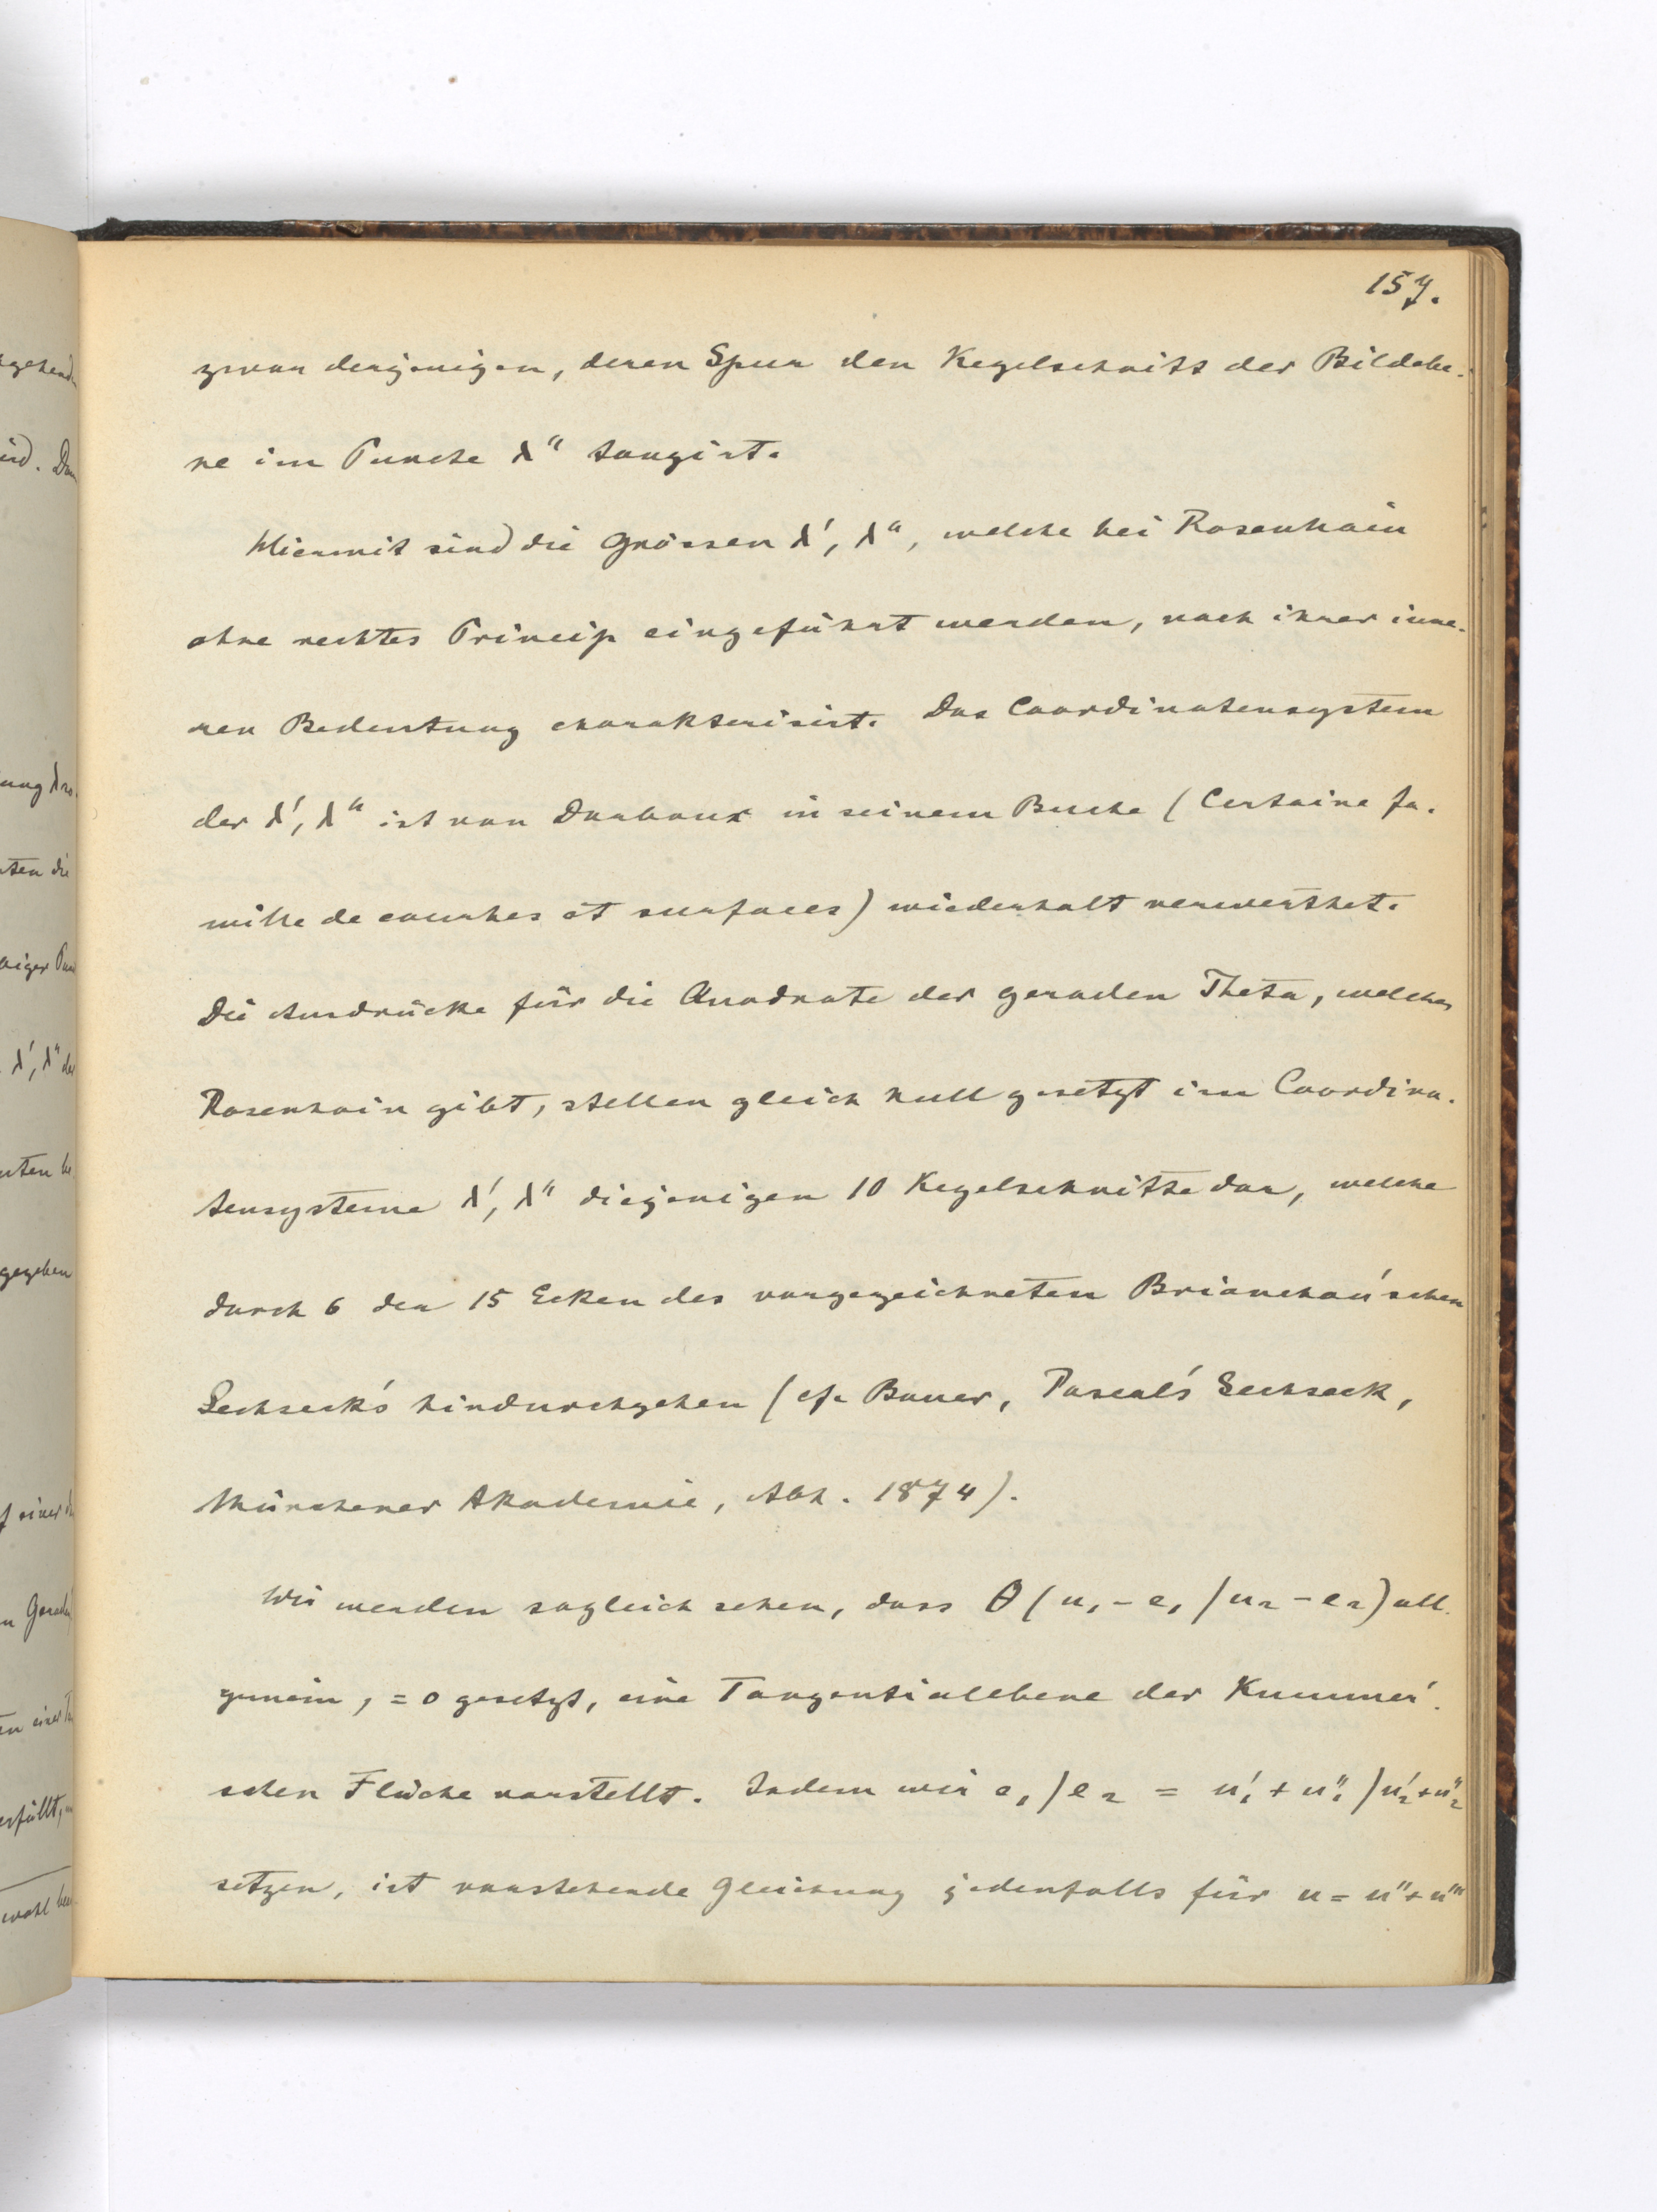 157.
zwar derjenigen, deren Spur den Kegelschnitt der Bildebe-
ne im Puncte λ" tangirt.
Hiermit sind die Grössen λ', λ", welche bei Rosenhain
ohne rechtes Princip eingeführt werden, nach ihrer inne-
ren Bedeutung charakterisirt. Das Coordinatensystem
der λ', λ" ist von Darboux in seinem Buche (Certaine fa-
mille de courbes et surfaces) wiederholt verwerthet.
Die Ausdrücke für die Quadrate der geraden Theta, welche
Rosenhain gibt, stellen gleich Null gesetzt im Coordina-
tensysteme λ', λ" diejenigen 10 Kegelschnitte dar, welche
durch 6 der 15 Ecken des vorgezeichneten Brianchon'schen
Sechseck's hindurchgehen (cf. Bauer, Pascal's Sechseck,
Münchener Akademie, Abh. 1874).
Wir werden sogleich sehen, dass θ(u₁ - e₁ / u₂ - e₂) all-
gemein, = 0 gesetzt, eine Tangentialebene der Kummer'-
schen Fläche vorstellt. Indem wir e₁ / e₂ = u'₁ + u"₁ / u'₂ + u"₂
setzen, ist vorstehende Gleichung jedenfalls für u = u" + u'''